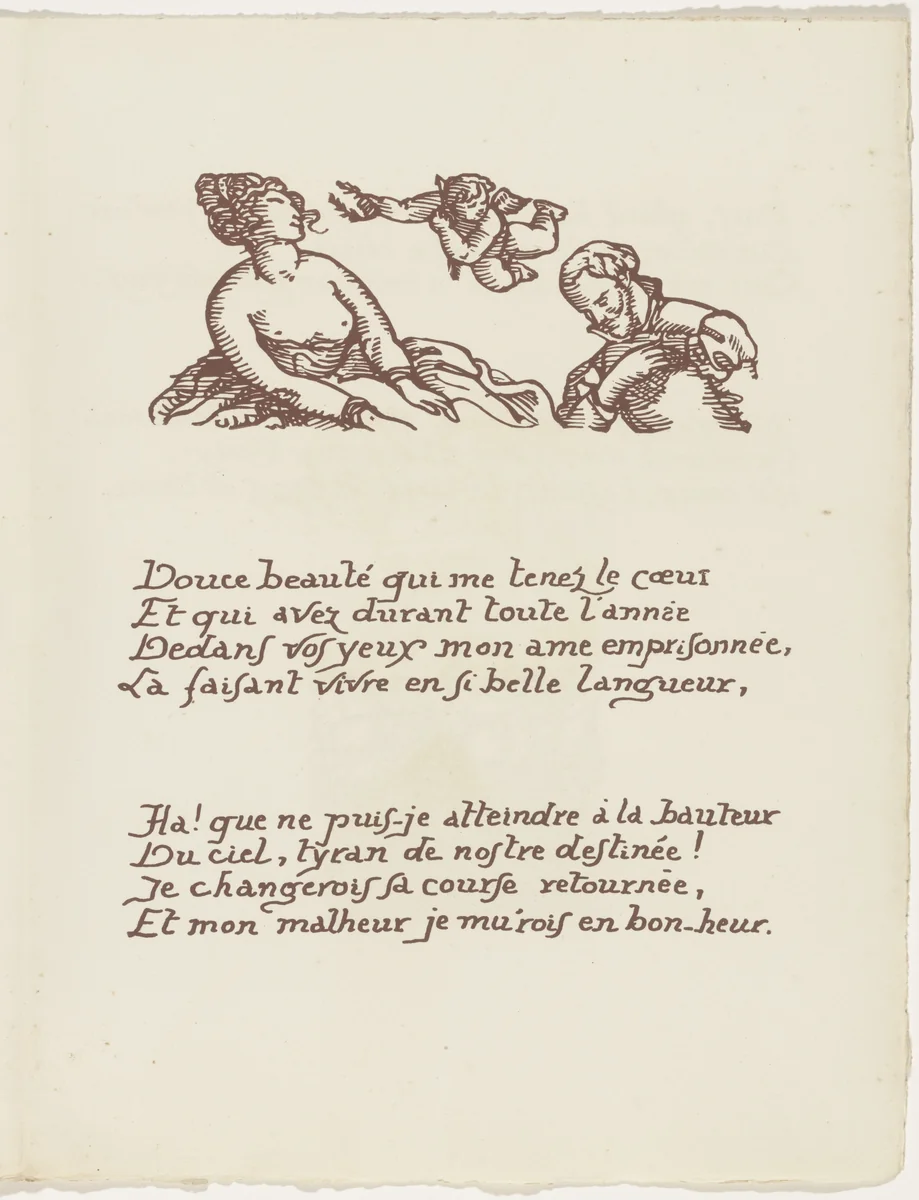 Douce beauté qui me tenez le cœur
Et qui avez durant toute l'année
Dedans vos yeux mon ame emprisonnée,
La faisant vivre en si belle langueur,
Ha! que ne puis-je atteindre à la hauteur
Du ciel, tyran de nostre destinée!
Je changerois sa course retournée,
Et mon malheur je mu'rois en bon-heur.